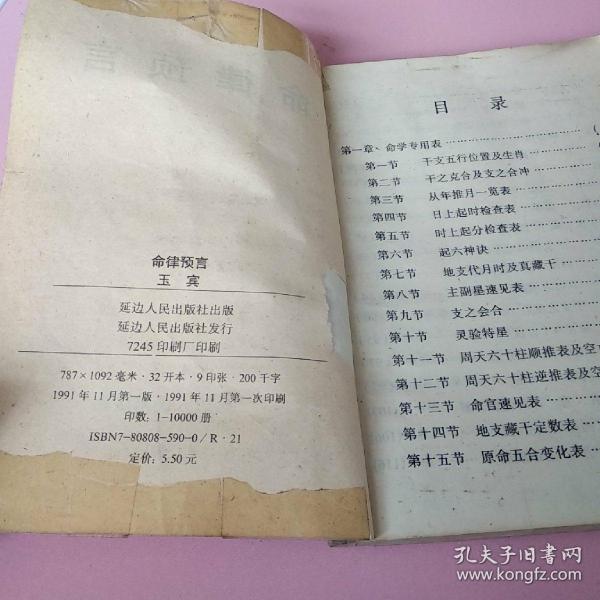 命律预言
命律预言
玉宾
延边人民出版社出版
延边人民出版社发行
7245印刷厂印刷
787×1092毫米·32开本·9印张·200千字
1991年11月第一版·1991年11月第一次印刷
印数:1-10000册
ISBN7-80808-590-0/R·21
定价:5.50元
目录
第一章、命学专用表
第一节 干支五行位置及生肖
第二节 干之克合及支之合冲
第三节 从年推月一览表
第四节 日上起时检查表
第五节 时上起分检查表
第六节 起六神诀
第七节 地支代月时及真藏干
第八节 主副星速见表
第九节 支之会合
第十节 灵验特星
第十一节 周天六十柱顺推表及空
第十二节 周天六十柱逆推表及空
第十三节 命宫速见表
第十四节 地支藏干定数表
第十五节 原命五合变化表
孔夫子旧书网
www.kongfz.com